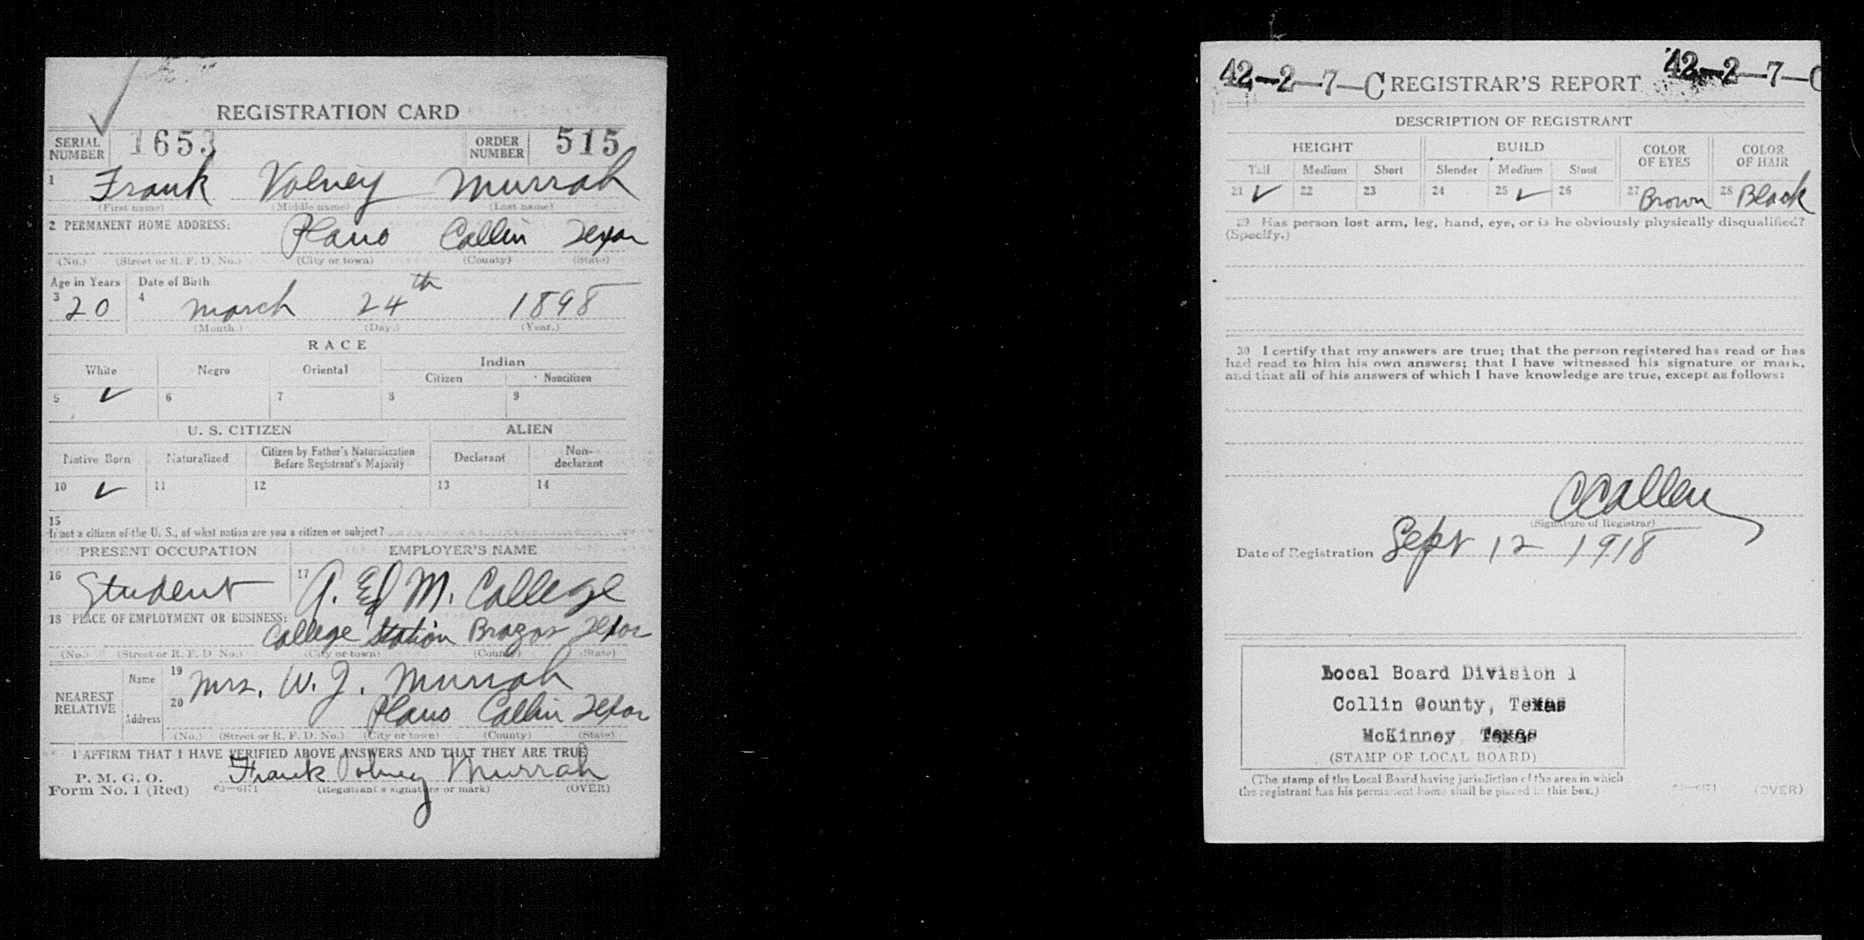 REGISTRATION CARD
SERIAL NUMBER 1653 ORDER NUMBER 515
1 Frank Volney Murrah
(First name) (Middle name) (Last name)
2 PERMANENT HOME ADDRESS: Plano Collin Texas
(No.) (Street or R. F. D. No.) (City or town) (County) (State)
Age in Years Date of Birth
3 20 4 March 24th 1898
(Month.) (Day.) (Year.)
RACE
White Negro Oriental Indian
Citizen Noncitizen
5 ✓ 6 7 8 9
U. S. CITIZEN ALIEN
Native Born Naturalized Citizen by Father's Naturalization Before Registrant's Majority Declarant Non-declarant
10 ✓ 11 12 13 14
15
If not a citizen of the U. S., of what nation are you a citizen or subject?
PRESENT OCCUPATION EMPLOYER'S NAME
16 Student 17 A. & M. College
18 PLACE OF EMPLOYMENT OR BUSINESS:
College Station Brazos Texas
(No.) (Street or R. F. D. No.) (City or town) (County) (State)
NEAREST RELATIVE Name 19 Mrs. W. J. Murrah
Address 20 Plano Collin Texas
(No.) (Street or R. F. D. No.) (City or town) (County) (State)
I AFFIRM THAT I HAVE VERIFIED ABOVE ANSWERS AND THAT THEY ARE TRUE
P. M. G. O.
Form No. 1 (Red) Frank Volney Murrah
(Registrant's signature or mark) (OVER)
42-2-7-C REGISTRAR'S REPORT 42-2-7-C
DESCRIPTION OF REGISTRANT
HEIGHT BUILD COLOR OF EYES COLOR OF HAIR
Tall Medium Short Slender Medium Stout
21 ✓ 22 23 24 25 ✓ 26 27 Brown 28 Black
29 Has person lost arm, leg, hand, eye, or is he obviously physically disqualified?
(Specify.)
30 I certify that my answers are true; that the person registered has read or has
had read to him his own answers; that I have witnessed his signature or mark,
and that all of his answers of which I have knowledge are true, except as follows:
C C Allen
(Signature of Registrar)
Date of Registration Sept 12 1918
Local Board Division 1
Collin County, Texas
McKinney Texas
(STAMP OF LOCAL BOARD)
(The stamp of the Local Board having jurisdiction of the area in which
the registrant has his permanent home shall be placed in this box.)
(OVER)